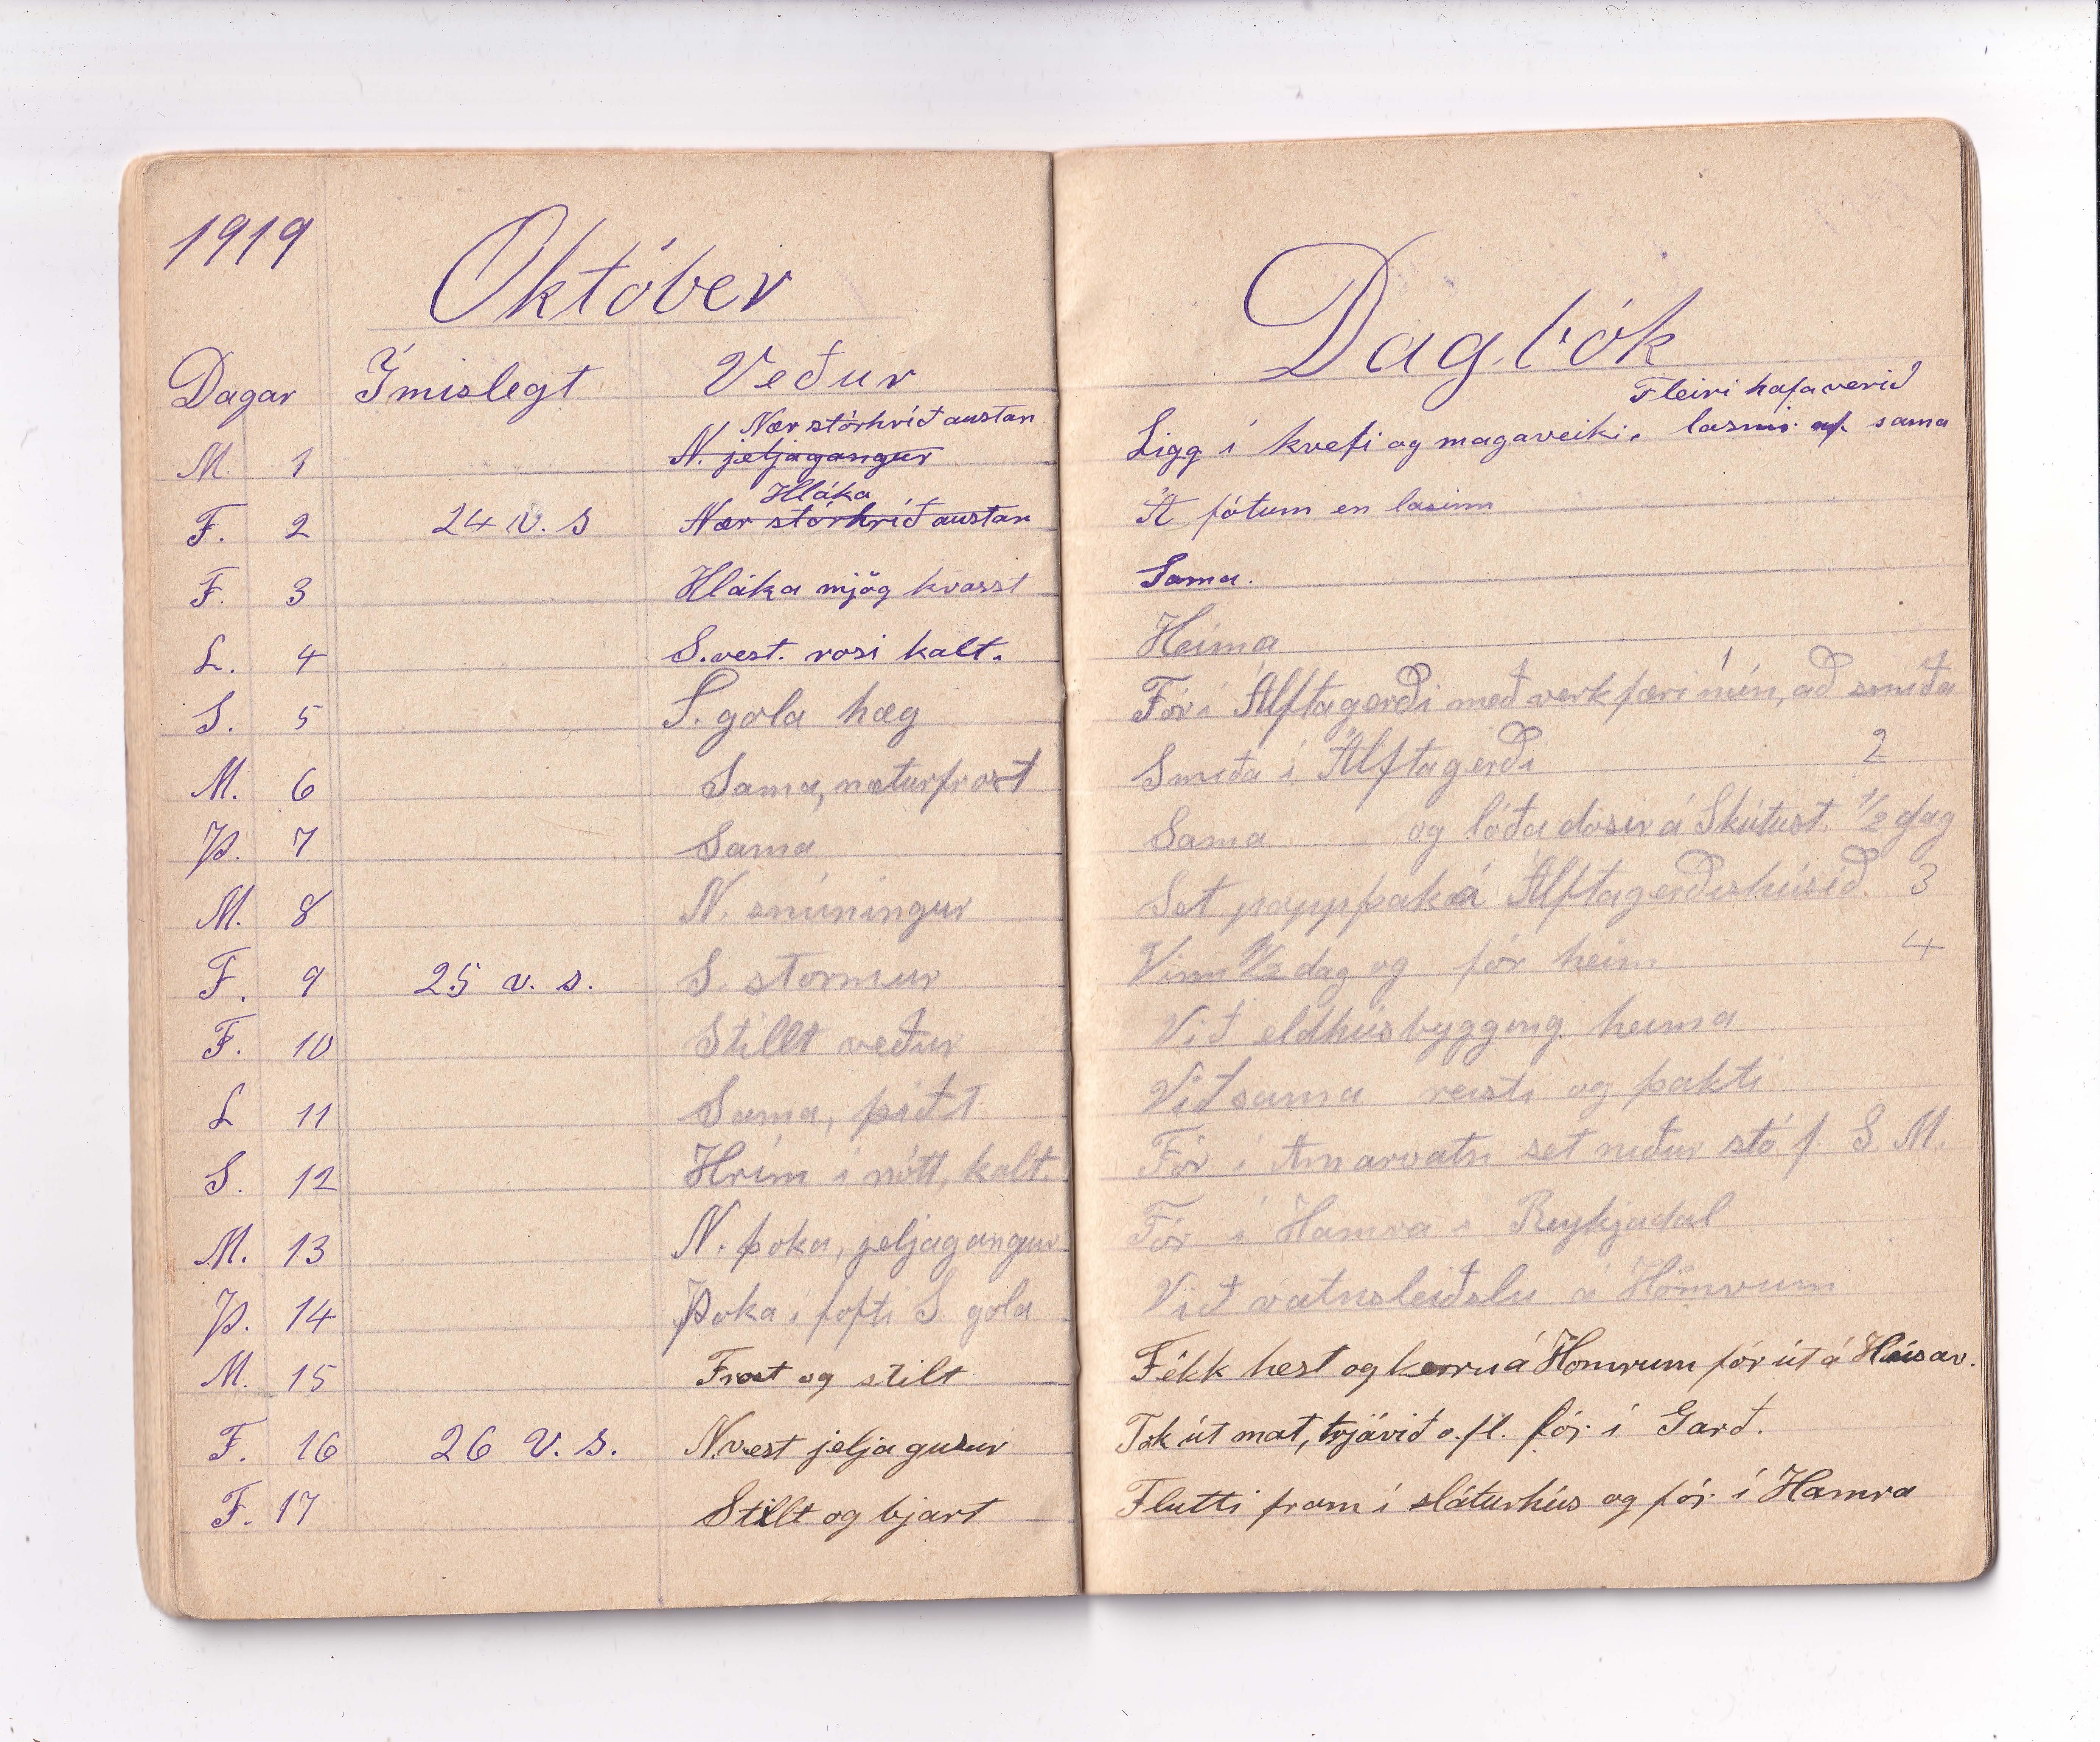 1919
Október
Dagar Ímislegt Veður
Nær stórhríð austan
M. 1 N. jeljagangur
Hláka
F. 2 24 v. s Nær stórhríð austan
F. 3 Hláka mjög kvasst
L. 4 S.vest. rosi kalt.
S. 5 S. gola hæg
M. 6 Sama, næturfrost
Þ. 7 Sama
M. 8 N. snúningur
F. 9 25 v. s. S. stormur
F. 10 Stillt veður
L 11 Sama, þiðt
S. 12 Hrím í nótt, kalt.
M. 13 N. þoka, jeljagangur
Þ. 14 Þoka í lofti S. gola
M. 15 Frost og stilt
F. 16 26 v. s. N.vest jeljagusur
F. 17 Stillt og bjart
Dagbók
Fleiri hafa verið
Ligg í kvefi og magaveiki. lasnir af sama
Á fótum en lasinn
Sama.
Heima
1
Fór í Álftagerði með verkfæri mín, að smíða
Smíða í Álftagerði 2
Sama og lóða dósir á Skútust. 1/2 dag
Set pappþak á Álftagerðishúsið. 3
Vinn 1/2 dag og fór heim 4
Við eldhúsbygging heima
Við sama reisti og þakti
Fór í Arnarvatn set niður stó f. S. M.
Fór í Hamra í Reykjadal
Við vatnsleiðslu á Hömrum
Fékk hest og kerru á Hömrum fór út á Húsav.
Tók út mat, trjávið o. fl. fór í Garð.
Flutti fram í sláturhús og fór í Hamra